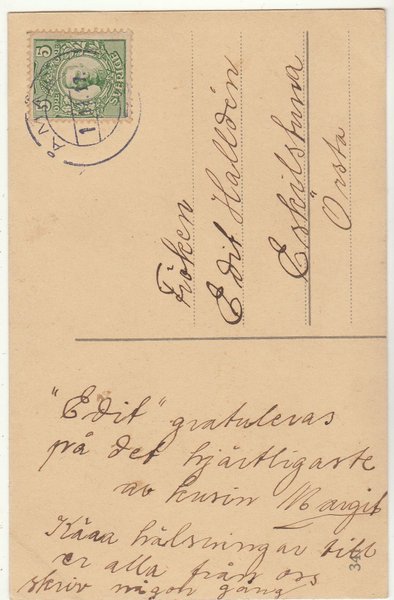 Fröken
Edit Halldén
Eskilstuna
Orsta
"Edit" gratuleras
på det hjärtligaste
av kusin Margit
Kära hälsningar till
er alla från oss
skriv någon gång
5 SVERIGE 5